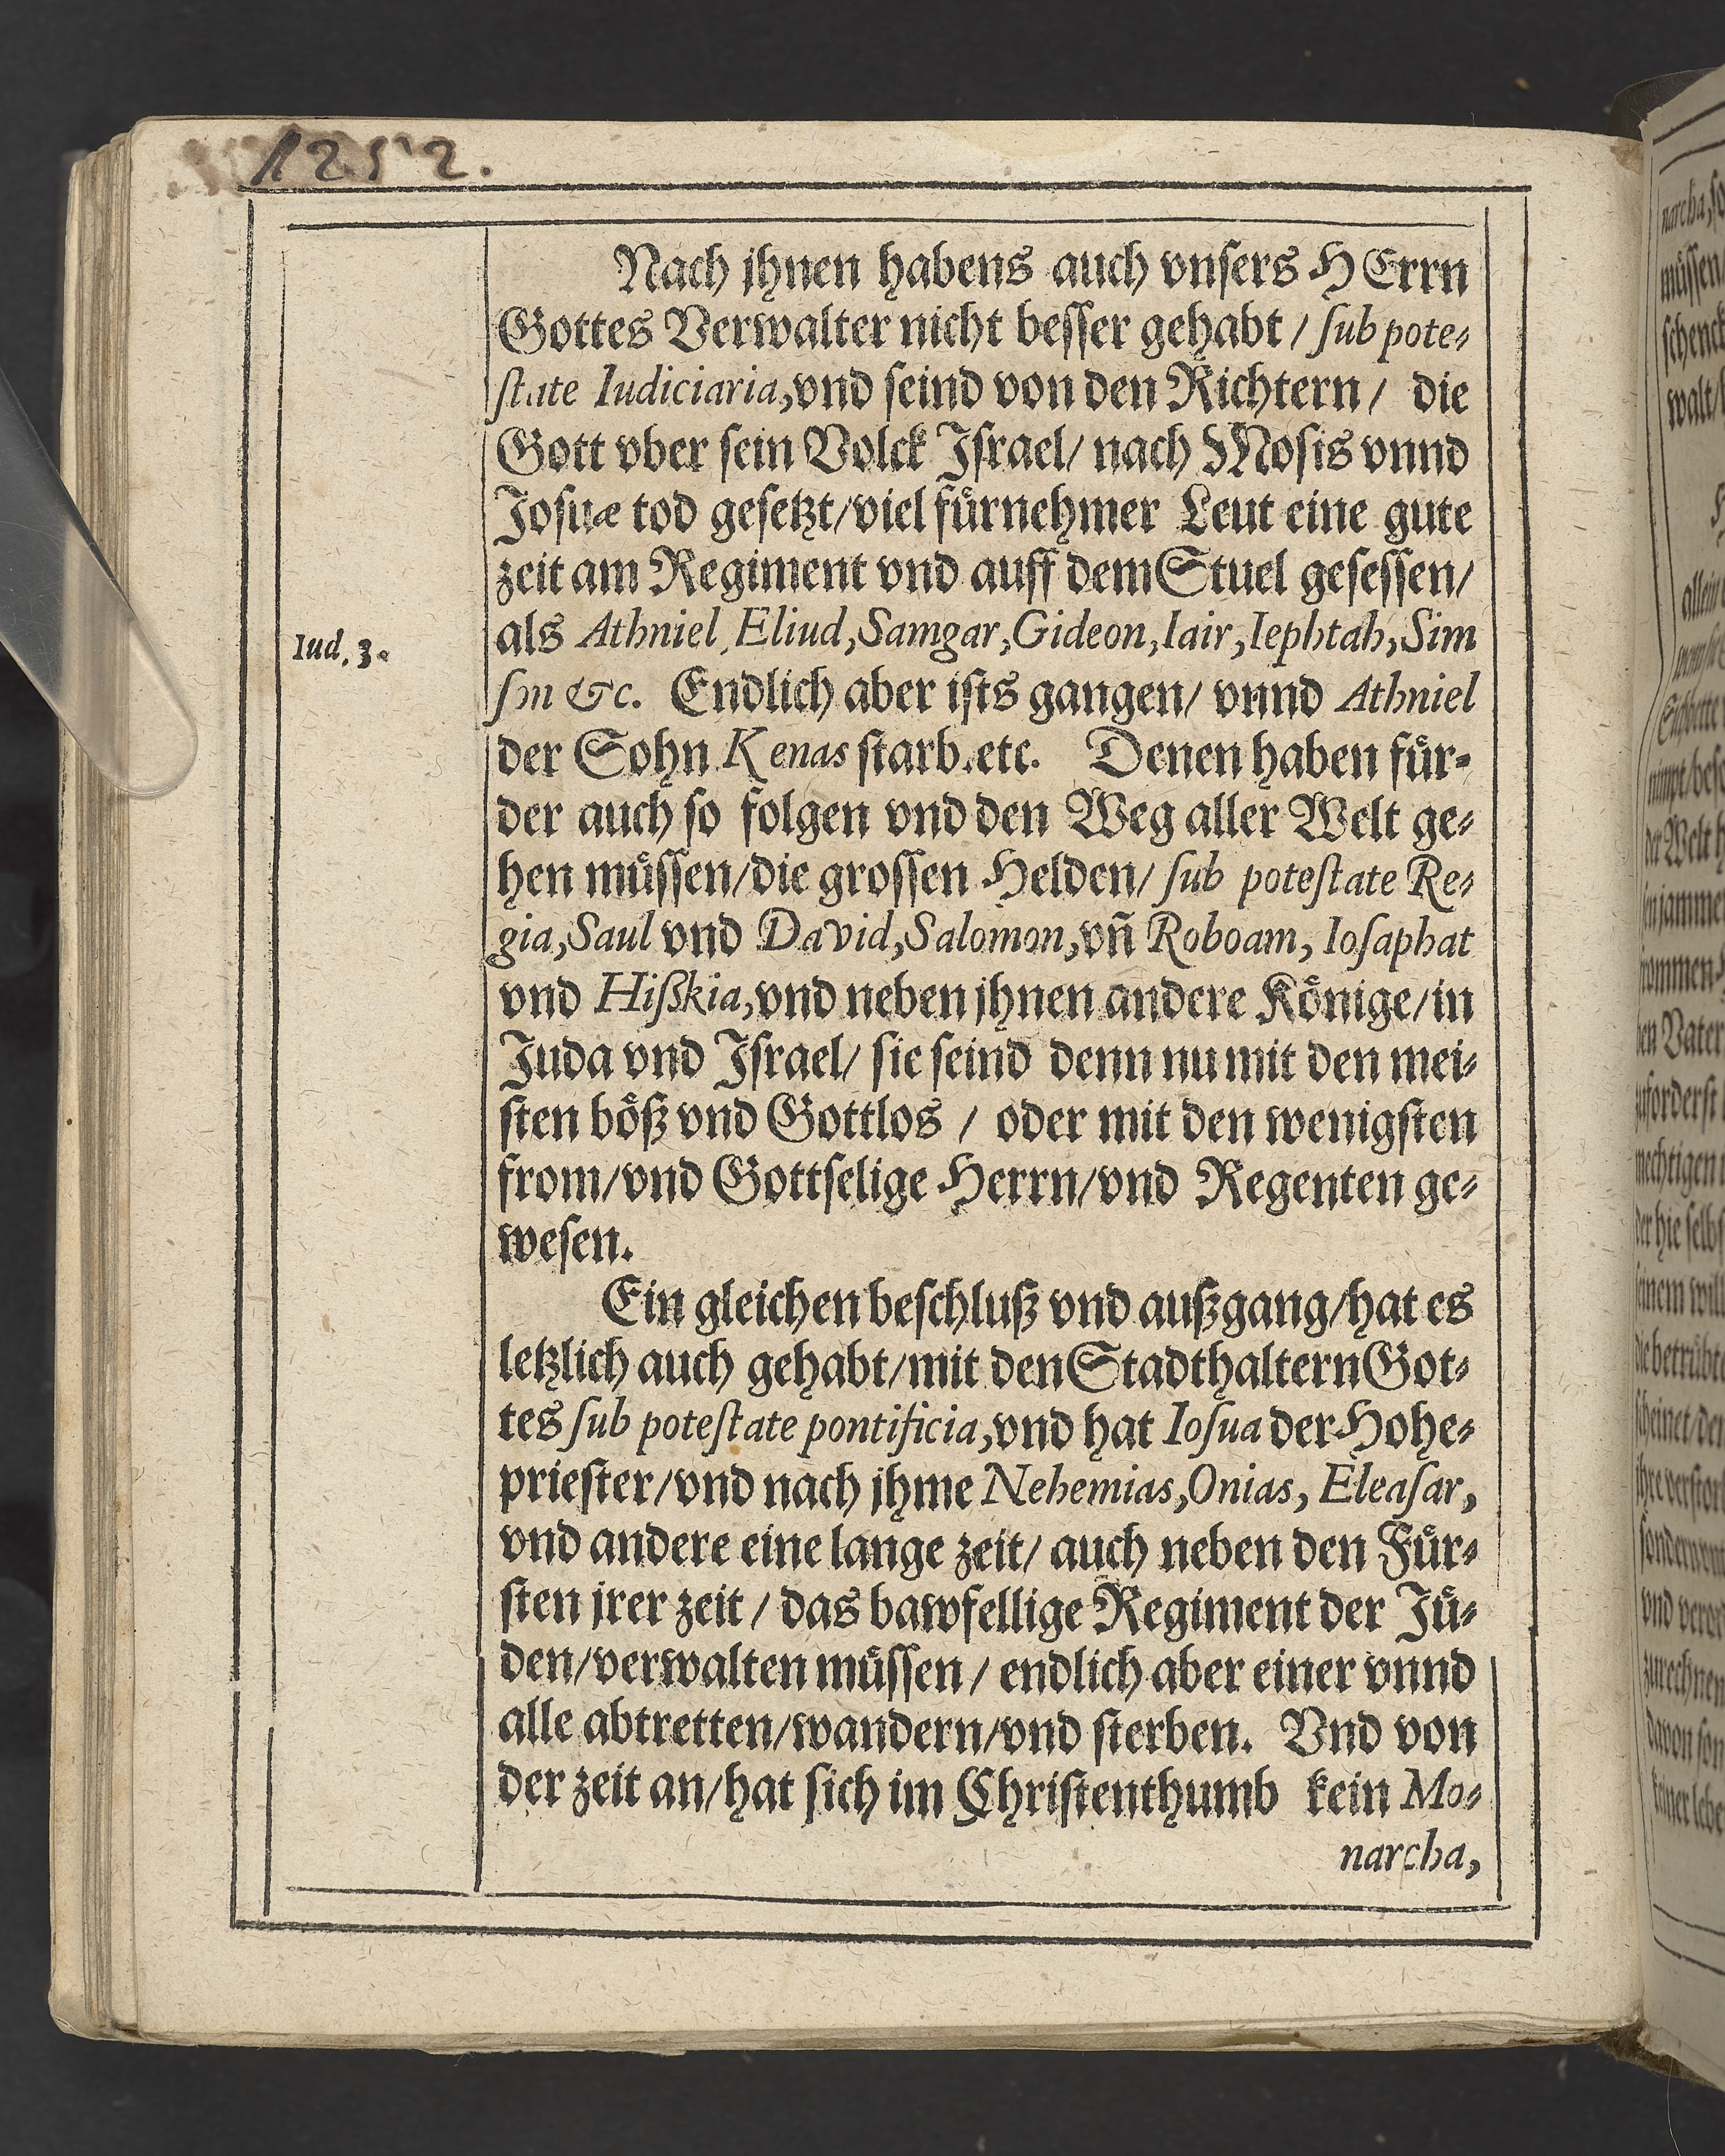 1252.
Nach jhnen habens auch vnsers HErrn
Gottes Verwalter nicht besser gehabt / ſub pote-
ſtate Iudiciaria, vnd seind von den Richtern / die
Gott vber sein Volck Jsrael / nach Mosis vnnd
Josuæ tod gesetzt / viel fürnehmer Leut eine gute
zeit am Regiment vnd auff dem Stuel gesessen /
Iud. 3.
als Athniel, Eliud, Samgar, Gideon, Iair, Iephtah, Sim
ſon &c. Endlich aber ists gangen / vnnd Athniel
der Sohn Kenas starb. etc. Denen haben für-
der auch so folgen vnd den Weg aller Welt ge-
hen müssen / die grossen Helden / ſub poteſtate Re-
gia, Saul vnd David, Salomon, vñ Roboam, Ioſaphat
vnd Hißkia, vnd neben jhnen andere Könige / in
Juda vnd Jsrael / sie seind denn nu mit den mei-
sten böß vnd Gottlos / oder mit den wenigsten
from / vnd Gottselige Herrn / vnd Regenten ge-
wesen.
Ein gleichen beschluß vnd außgang / hat es
letzlich auch gehabt / mit den Stadthaltern Got-
tes ſub poteſtate pontificia, vnd hat Ioſua der Hohe-
priester / vnd nach jhme Nehemias, Onias, Eleaſar,
vnd andere eine lange zeit / auch neben den Für-
sten jrer zeit / das bawfellige Regiment der Jü-
den / verwalten müssen / endlich aber einer vnnd
alle abtretten / wandern / vnd sterben. Vnd von
der zeit an / hat sich im Christenthumb kein Mo-
narcha,